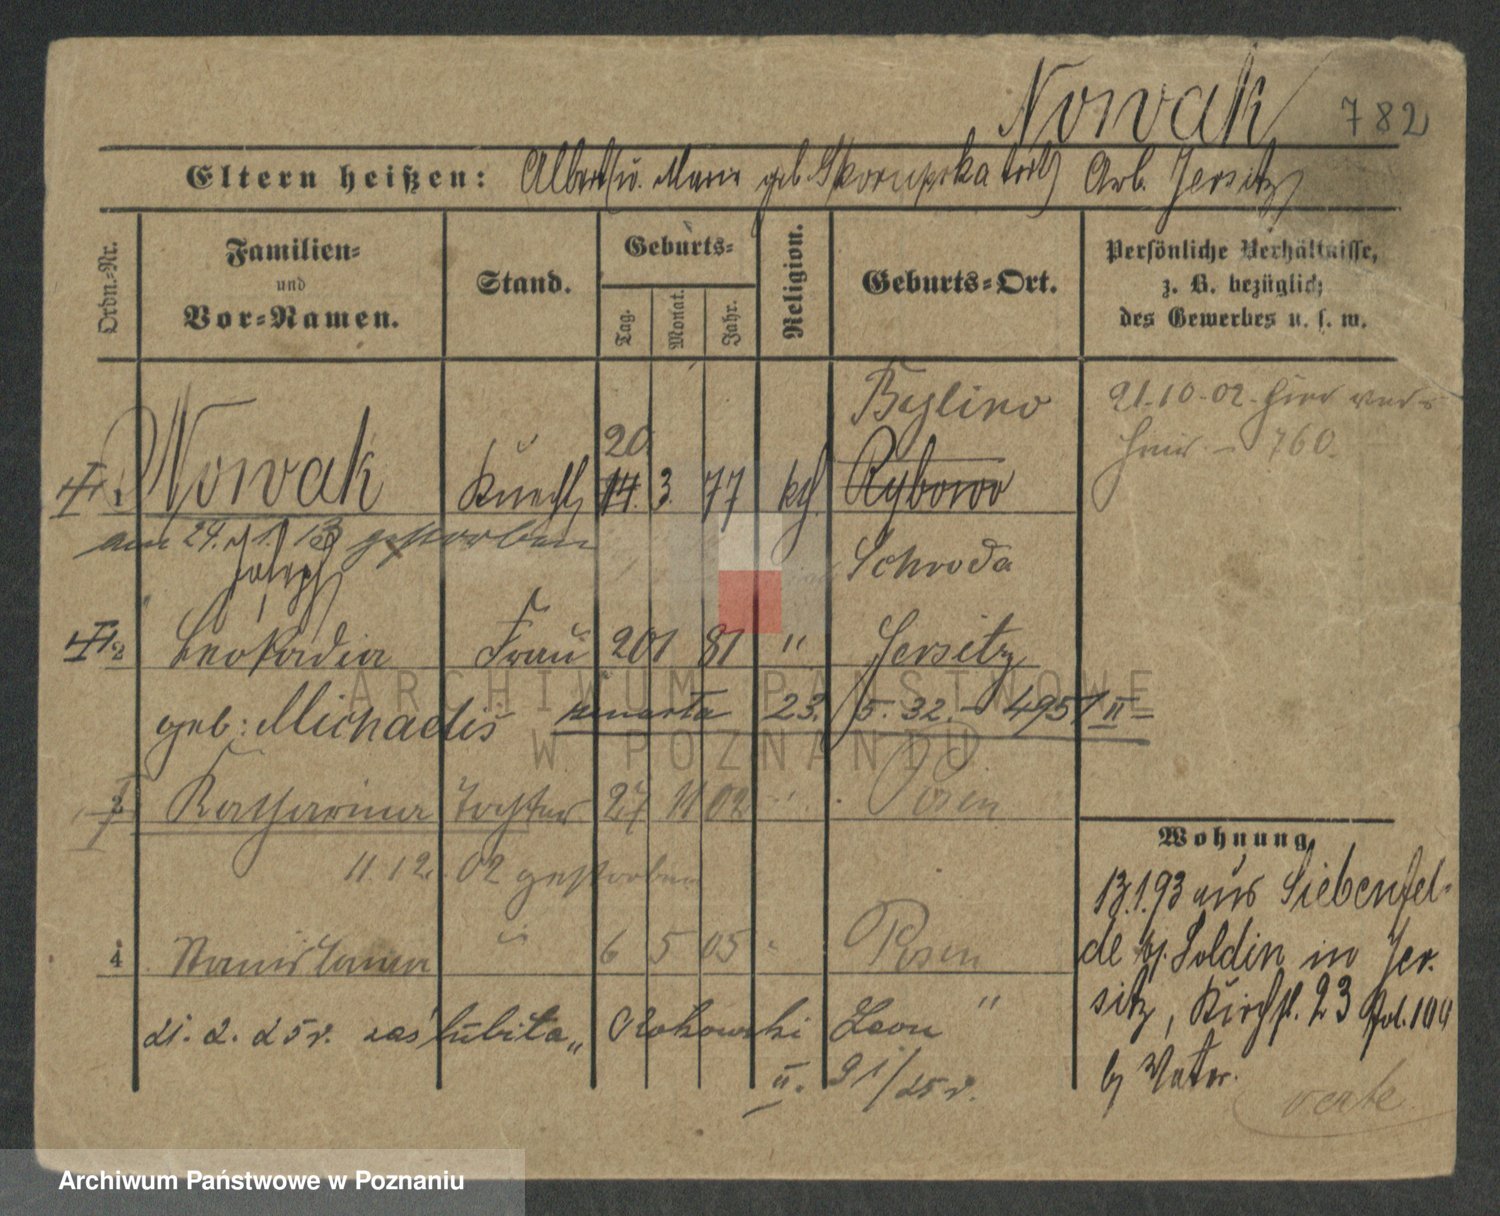 Nowak 782
Eltern heißen: Albert u. Marie geb. Skorupska Arb. Jersitz
Ordn.-Nr.
Familien-
und
Vor-Namen.
Stand.
Geburts-
Tag.
Monat.
Jahr.
Religion.
Geburts-Ort.
Persönliche Verhältnisse,
z. B. bezüglich
des Gewerbes u. s. w.
Bylino
21.10.02. hier
760.
20.
1 Nowak Knecht 14. 3. 77 kth. Ryborow
am 24. 1. 13 gestorben
Joseph
Schroda
2 Leokadia Frau 20 1 81 " Jersitz
geb: Michaelis zmarła 23. 5. 32. – 4951 II
3 Katharina Tochter 27 11 02 " Posen
11. 12. 02 gestorben
4 Stanislawa " 6 5 05 " Posen
21. 2. 25 r. zaślubiła „ Rokowski Leon "
u. 91/25 r.
Wohnung
13.1.93 aus Siebenfel-
de b. Soldin in Jer-
sitz, Kirchst. 23 Pol. 104
b. Vater.
verte
ARCHIWUM PAŃSTWOWE
W POZNANIU
Archiwum Państwowe w Poznaniu